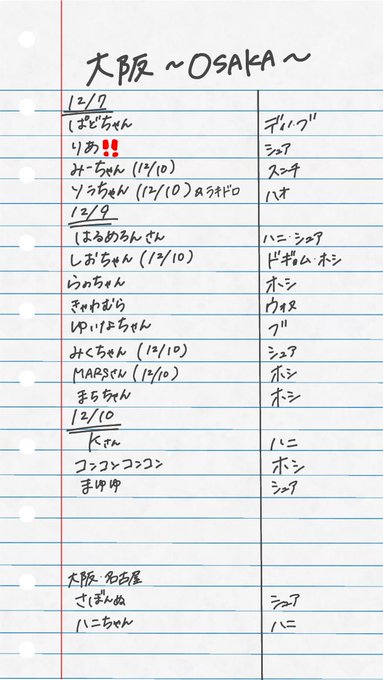 大阪 ~OSAKA~
12/7
ぱどちゃん ディノ・ブ
りあ‼ シュア
みーちゃん (12/10) スンチ
ソラちゃん (12/10) ハオ
12/9
はるめろんさん ハニ・シュア
しおちゃん (12/10) ドギョム・ホシ
らのちゃん ホシ
きゃわむら ウォヌ
ゆいぴよちゃん ブ
みくちゃん (12/10) シュア
MARSさん (12/10) ホシ
まちちゃん ホシ
12/10
Kさん ハニ
コンコンコンコン ホシ
まゆゆ シュア
大阪・名古屋
さぼんぬ シュア
ハニちゃん ハニ